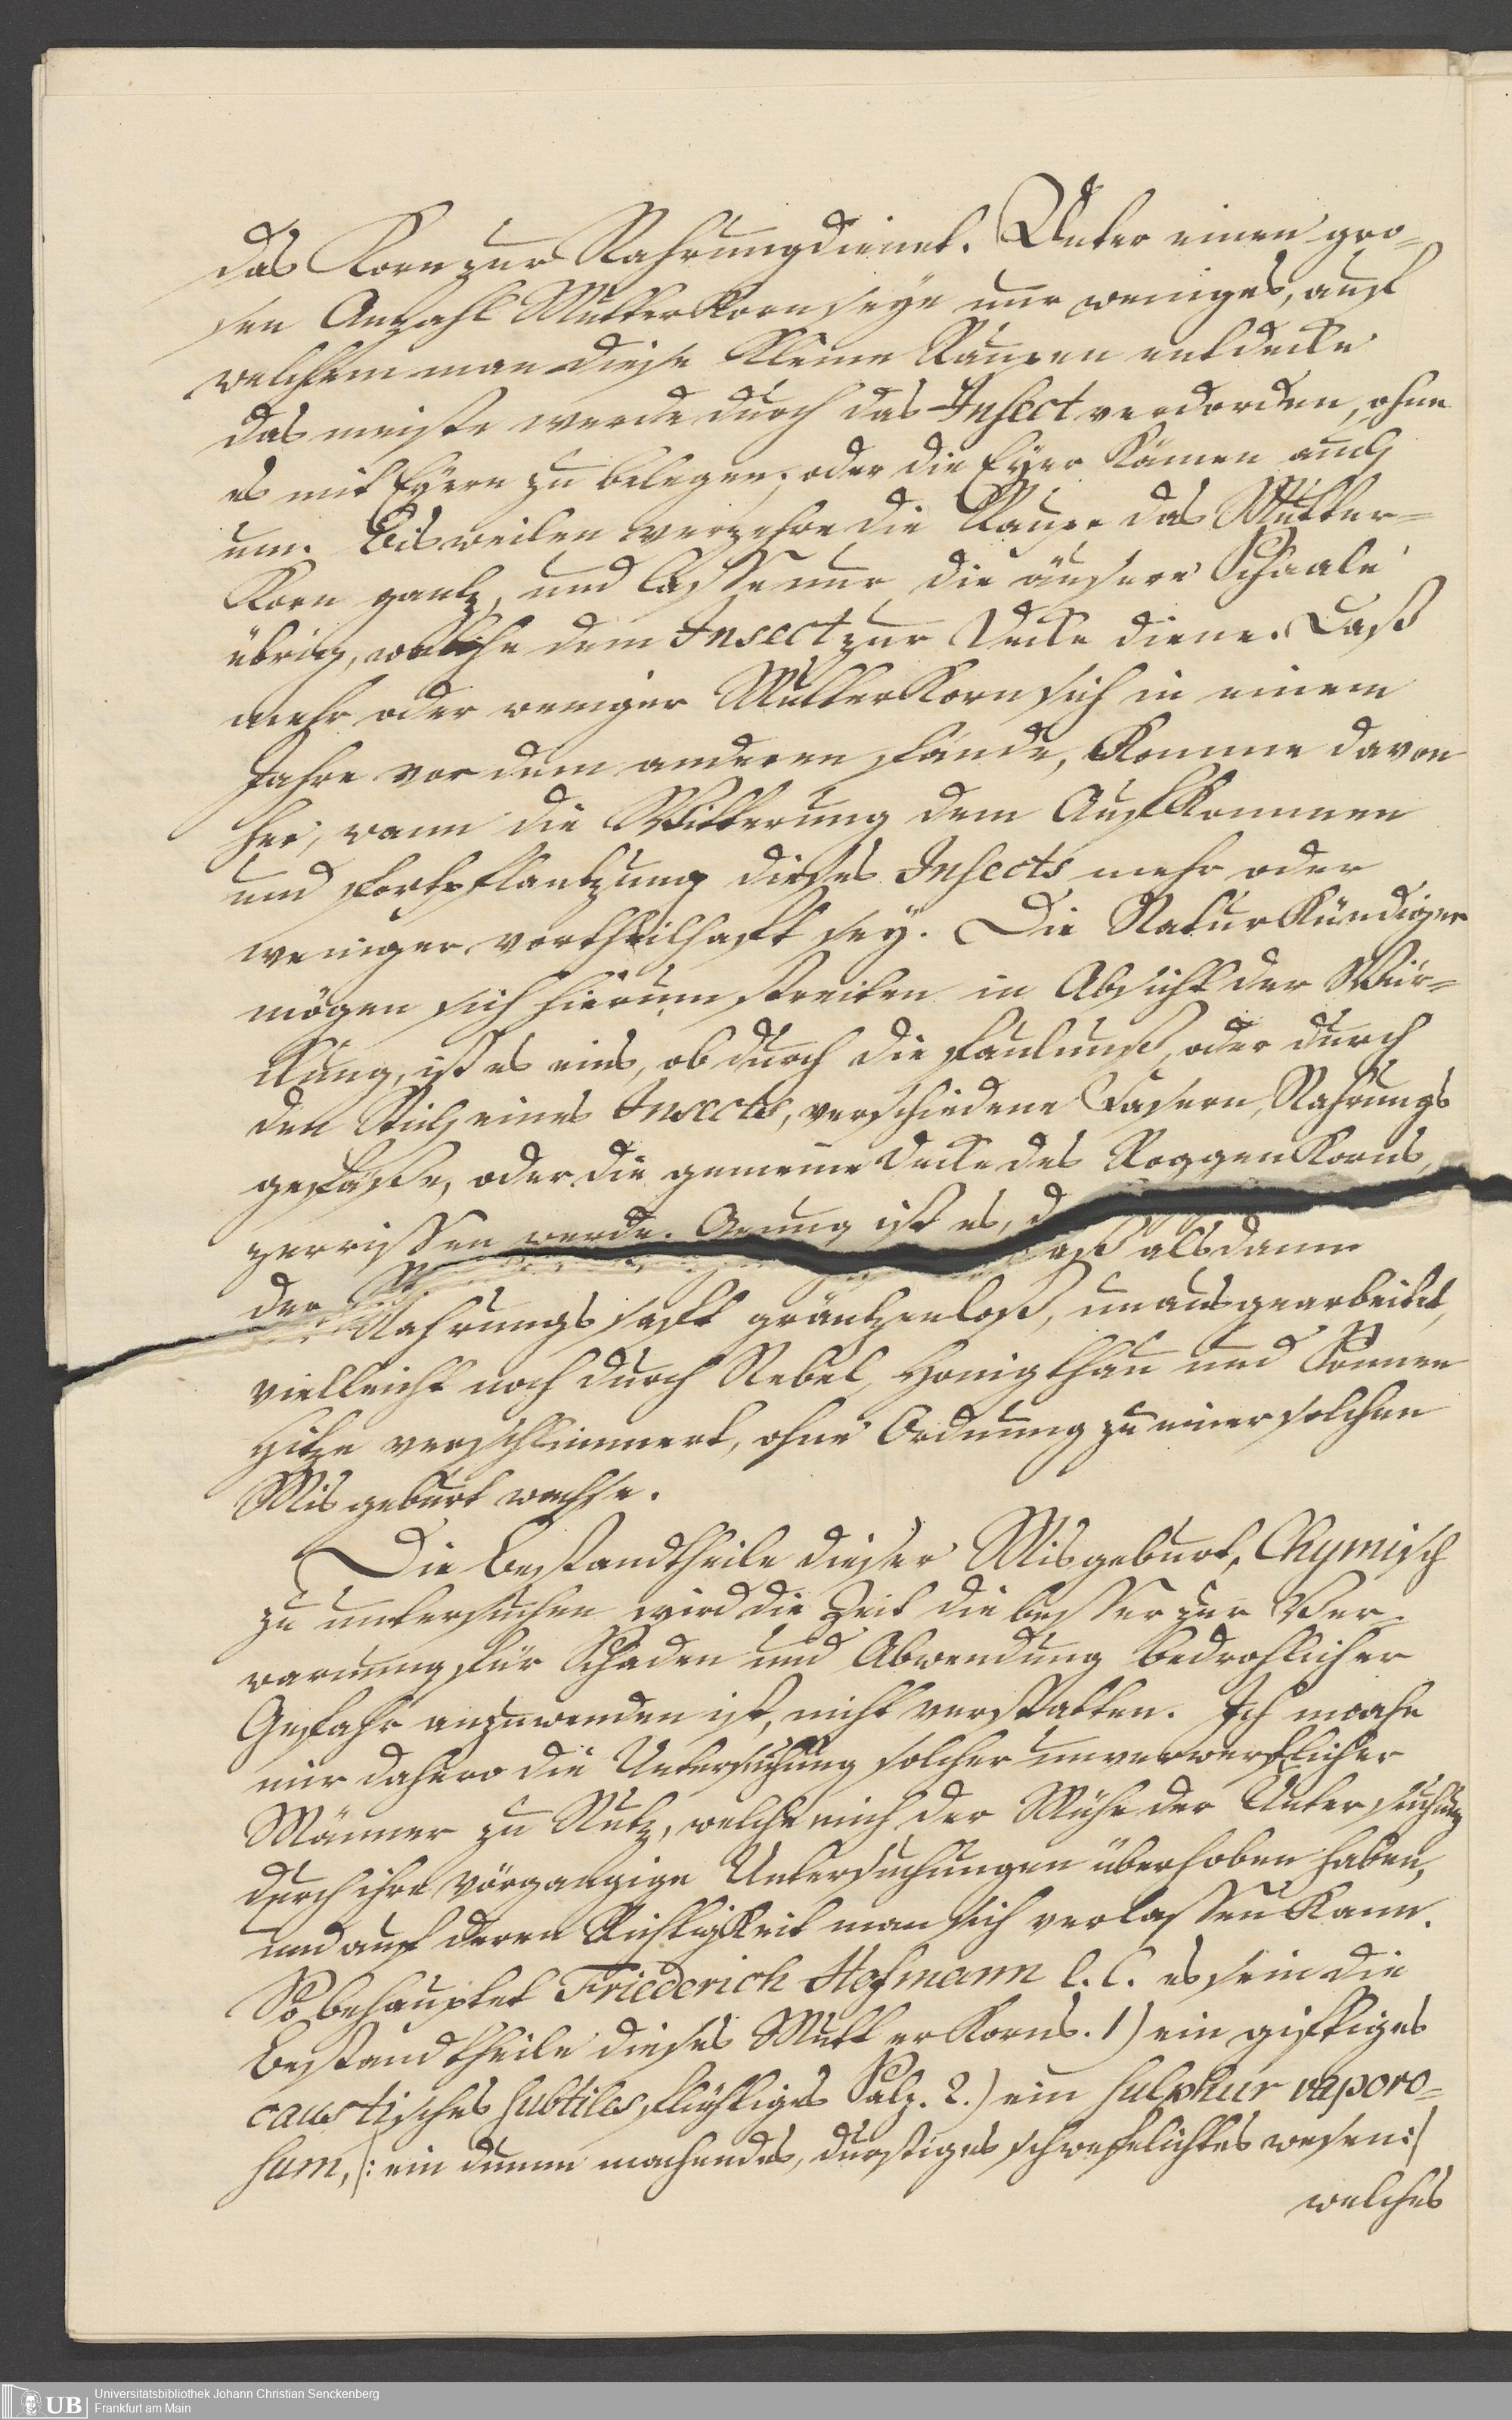 das Korn zur Nahrung dienet. Unter einer gro-
sen Anzahl Mutter Korn seye nur weniges, auf
welchem man diese kleine Raupen entdecke
das meiste werde durch das Insect verdorben, ohne
es mit Eyern zu belegen, oder die Eyer kämen auch
um. Bisweilen verzehre die Raupe das Mutter-
Korn gantz, und lasse nur die äusere Schaale
übrig, welche dem Insect zur Decke diene. Daß
mehr oder weniger Mutter Korn sich in einem
Jahre vor dem anderen fände, komme davon
her, wann die Witterung dem Aufkommen
und Fortpflantzung dieses Insects mehr oder
weniger vortheilhaft sey. Die Naturkündiger
mögen sich hierüm streiten in Absicht der Wür-
kung, ist es eins, ob durch die Faulnuß, oder durch
den Stich eines Insects, verschiedene Fasern, Nahrungs
gefäße, oder die gemeine Decke des Roggen Korns,
zerrissen werde. Genung ist es, daß alsdann
der Nahrungs saft gräntzenloß, unausgearbeitet,
vielleicht noch durch Nebel, Honigthau und Sonnen
Hitze verschlimmert, ohne Ordnung zu einer solchen
Misgeburt wachse.
Die Bestandtheile dieser Misgeburt, Chymisch
zu untersuchen wird die Zeit die besser zur Ver-
warnung für Schaden und Abwendung bedrohlicher
Gefahr anzuwenden ist, nicht verstatten. Ich mache
mir dahero die Untersuchung solcher unverwerflicher
Männer zu Nutz, welche mich der Mühe der Untersuchung
durch ihre vorgangige Untersuchungen überhoben haben,
und auf deren Richtigkeit man sich verlassen kann.
So behauptet Friederich Hofmann l. c. es sein die
Bestandtheile dieses Mutter Korns. 1) ein giftiges
caustisches subtiles, flüchtiges Salz. 2.) ein sulphur vaporo-
sum, /: ein dumm machendes, dunstiges schwefelichtes wesen :/
welches
Universitätsbibliothek Johann Christian Senckenberg
Frankfurt am Main
UB